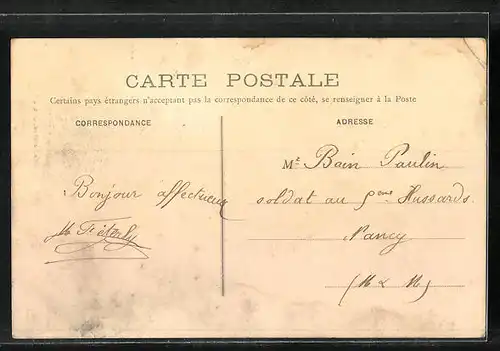 CARTE POSTALE
Certains pays étrangers n'acceptant pas la correspondance de ce côté, se renseigner à la Poste
CORRESPONDANCE
Bonjour affectueux
ADRESSE
Mr Bain Paulin
soldat au 5ème Hussards
Nancy
(M & M)